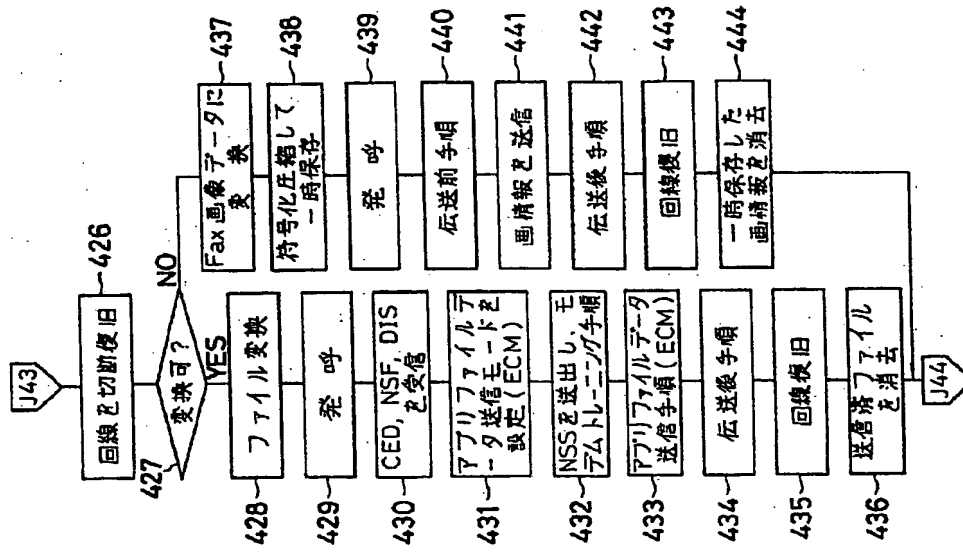 J43
回線を切断復旧
426
変換可?
427
NO
YES
ファイル変換
428
発呼
429
CED, NSF, DIS
を受信
430
アプリファイルデ
ータ送信モードを
設定(ECM)
431
NSSを送出し、モ
デムトレーニング手順
432
アプリファイルデータ
送信手順(ECM)
433
伝送後手順
434
回線復旧
435
送信済ファイル
を消去
436
Fax画像データに
変換
437
符号化圧縮して
一時保存
438
発呼
439
伝送前手順
440
画情報を送信
441
伝送後手順
442
回線復旧
443
一時保存した
画情報を消去
444
J44